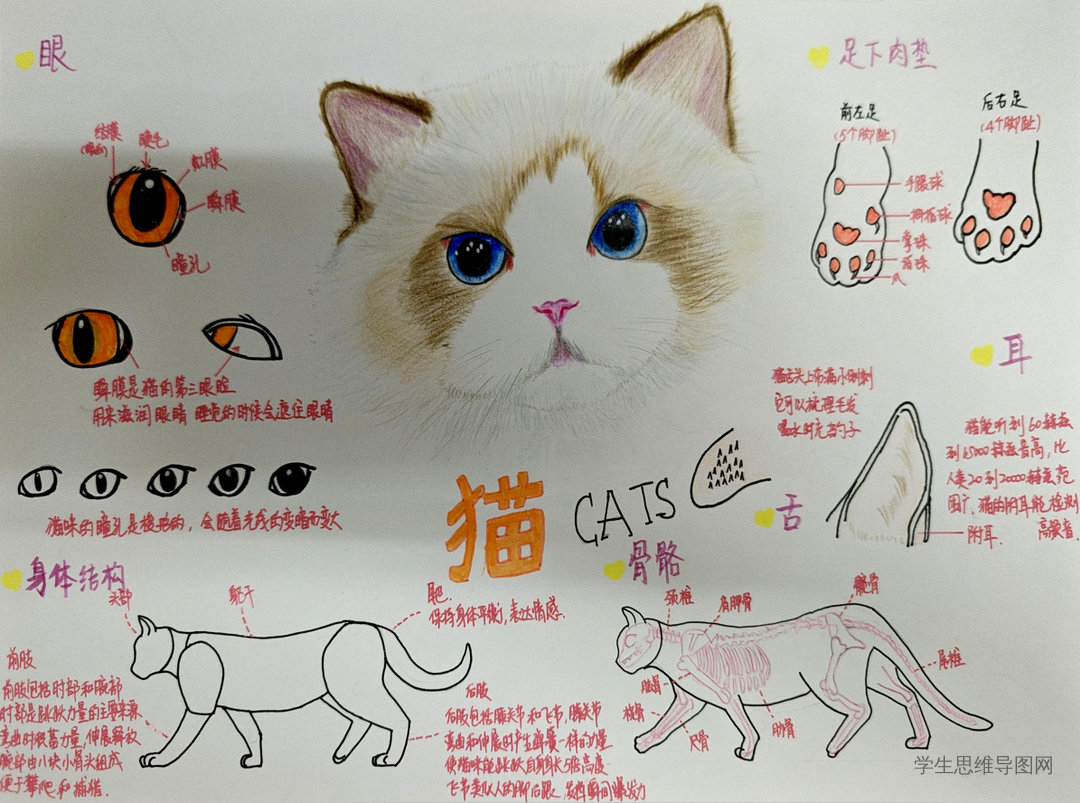 眼
结膜
(眼白)
睫毛
虹膜
瞬膜
瞳孔
瞬膜是猫的第三眼睑
用来滋润眼睛 睡觉的时候会遮住眼睛
猫咪的瞳孔是梭形的，会随着光线的变暗而变大
足下肉垫
前左足
(5个脚趾)
后右足
(4个脚趾)
手腕球
拇指球
掌球
指球
爪
耳
猫能听到60赫兹
到65000赫兹音高，比
人类20到20000赫兹范
围广，猫的附耳能检测
高频音.
附耳.
猫舌头上布满小倒刺
它可以梳理毛发
喝水时充当勺子
舌
猫
CATS
身体结构
头部
躯干
尾巴.
保持身体平衡，表达情感.
前肢
前肢包括肘部和腕部
肘部是跳跃力量的主要来源
弯曲时积蓄力量，伸展释放
腕部由小块小骨头组成
便于攀爬和捕猎.
后肢
后肢包括膝关节和飞节，膝关节
弯曲和伸展时产生弹簧一样的力量
使猫咪能跳跃自身身长5倍高度
飞节类似人的脚后跟，发挥瞬间爆发力
骨骼
颈椎
肩胛骨
髋骨
尾椎
肱骨
桡骨
尺骨
肋骨
学生思维导图网